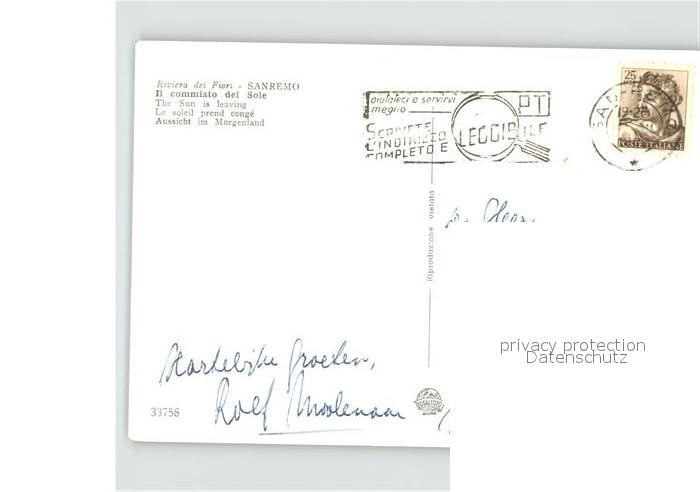 Riviera dei Fiori - SANREMO
Il commiato del Sole
The Sun is leaving
Le soleil prend congé
Aussicht im Morgenland
aiutateci a servirvi
meglio
PT
SCRIVETE
L'INDIRIZZO
COMPLETO E LEGGIBILE
25
19-20
POSTE ITALIANE
Riproduzione vietata
privacy protection
Datenschutz
Hartelijke groeten,
Roelf Moolenaar
33758